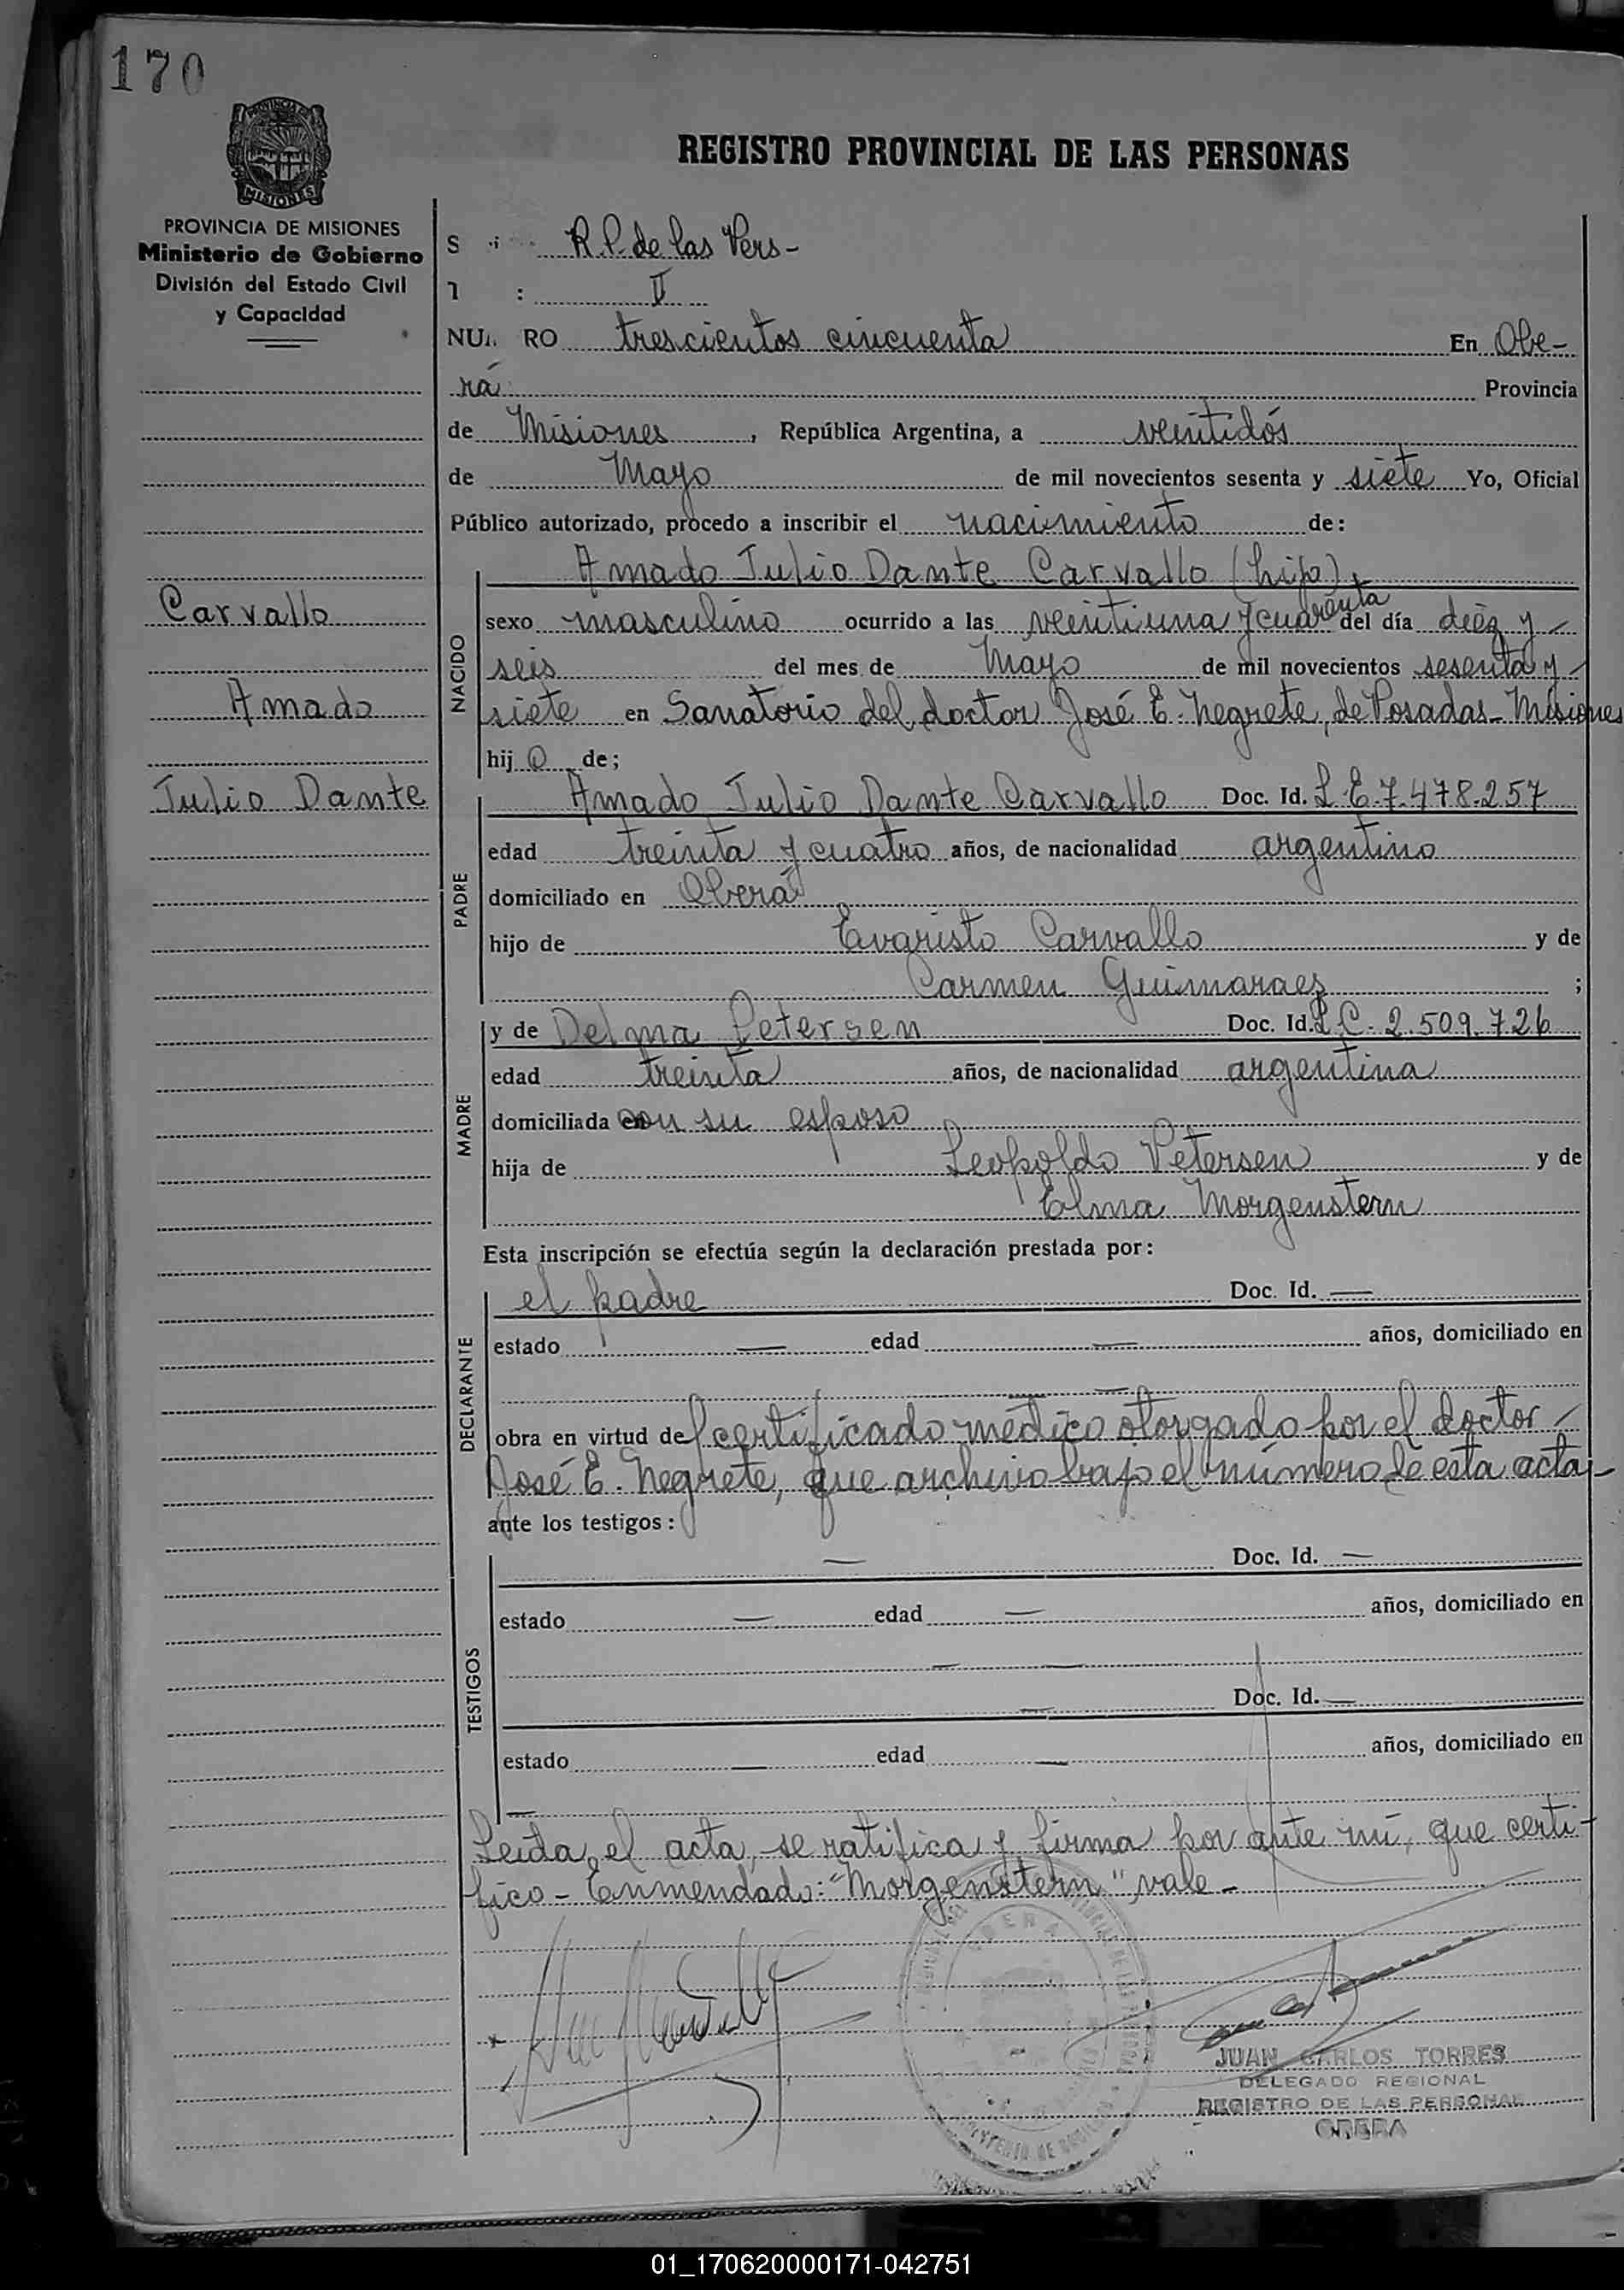 170
PROVINCIA DE
MISIONES
REGISTRO PROVINCIAL DE LAS PERSONAS
PROVINCIA DE MISIONES
Ministerio de Gobierno
División del Estado Civil
y Capacidad
Carvallo
Amado
Julio Dante
S i R.P. de las Pers-
: II
NU RO trescientos cincuenta En Obe-
rá Provincia
de Misiones, República Argentina, a veintidós
de Mayo de mil novecientos sesenta y siete Yo, Oficial
Público autorizado, procedo a inscribir el nacimiento de:
Amado Julio Dante Carvallo (hijo)
NACIDO
sexo masculino ocurrido a las veintiuna y cuarenta del día diez y
seis del mes de Mayo de mil novecientos sesenta y
siete en Sanatorio del doctor José E. Negrete, de Posadas-Misiones
hij o de;
PADRE
Amado Julio Dante Carvallo Doc. Id. L.E. 7.478.257
edad treinta y cuatro años, de nacionalidad argentino
domiciliado en Oberá
hijo de Evaristo Carvallo y de
Carmen Guimaraez ;
MADRE
y de Delma Petersen Doc. Id. L.C. 2.509.726
edad treinta años, de nacionalidad argentina
domiciliada en con su esposo
hija de Leopoldo Petersen y de
Elma Morgenstern
Esta inscripción se efectúa según la declaración prestada por:
DECLARANTE
el padre Doc. Id. —
estado — edad — años, domiciliado en
— —
obra en virtud del certificado médico otorgado por el doctor
José E. Negrete, que archivo bajo el número de esta acta-
ante los testigos:
TESTIGOS
— Doc. Id. —
estado — edad — años, domiciliado en
— —
— Doc. Id. —
estado — edad — años, domiciliado en
—
Leída el acta, se ratifica y firma por ante mí, que certi-
fico - Enmendado: "Morgenstern" vale-
OBERA
JUAN CARLOS TORRES
DELEGADO REGIONAL
REGISTRO DE LAS PERSONAS
OBERA
01_170620000171-042751